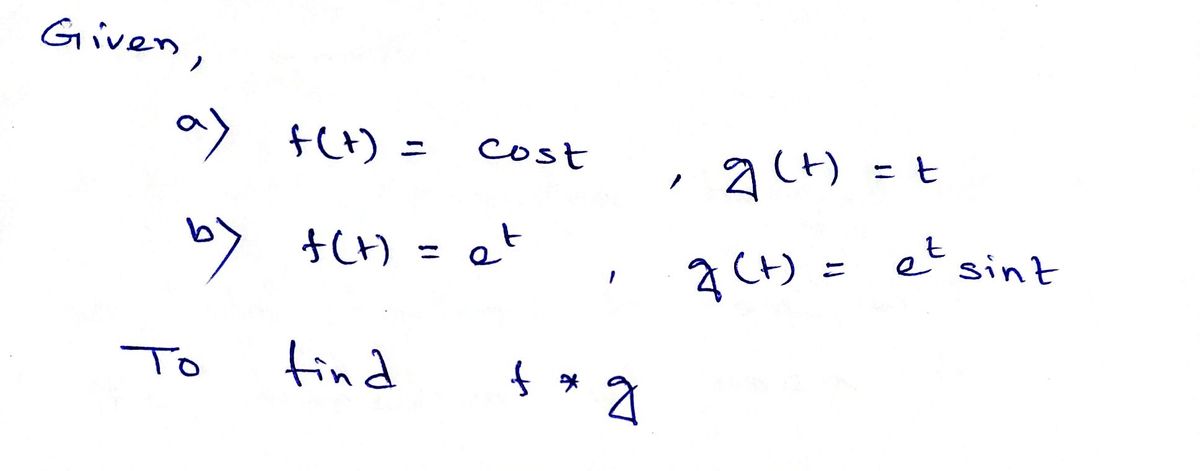 Given,
a) f(t) = cost , g(t) = t
b) f(t) = e^t , g(t) = e^t sint
To find f * g